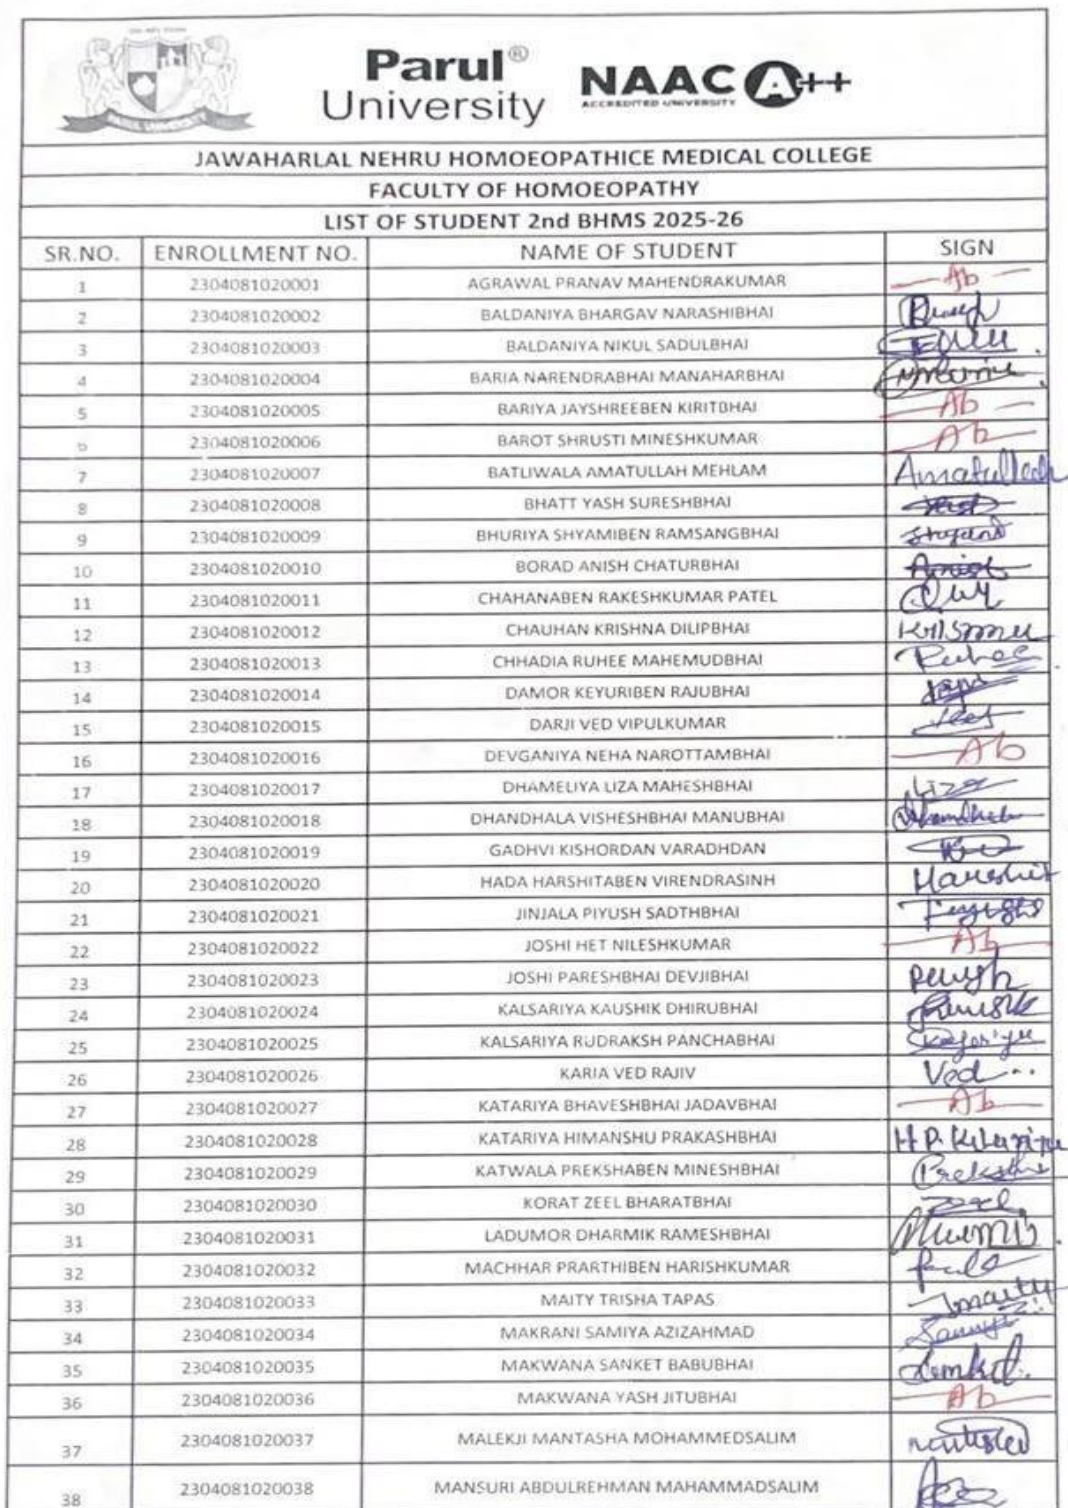 PARUL UNIVERSITY
Parul®
University
NAAC A++
ACCREDITED UNIVERSITY
JAWAHARLAL NEHRU HOMOEOPATHICE MEDICAL COLLEGE
FACULTY OF HOMOEOPATHY
LIST OF STUDENT 2nd BHMS 2025-26
SR.NO. ENROLLMENT NO. NAME OF STUDENT SIGN
1 2304081020001 AGRAWAL PRANAV MAHENDRAKUMAR Ab
2 2304081020002 BALDANIYA BHARGAV NARASHIBHAI
3 2304081020003 BALDANIYA NIKUL SADULBHAI
4 2304081020004 BARIA NARENDRABHAI MANAHARBHAI
5 2304081020005 BARIYA JAYSHREEBEN KIRITBHAI Ab
6 2304081020006 BAROT SHRUSTI MINESHKUMAR Ab
7 2304081020007 BATLIWALA AMATULLAH MEHLAM Amatullah
8 2304081020008 BHATT YASH SURESHBHAI
9 2304081020009 BHURIYA SHYAMIBEN RAMSANGBHAI
10 2304081020010 BORAD ANISH CHATURBHAI Anish
11 2304081020011 CHAHANABEN RAKESHKUMAR PATEL
12 2304081020012 CHAUHAN KRISHNA DILIPBHAI
13 2304081020013 CHHADIA RUHEE MAHEMUDBHAI Ruhee
14 2304081020014 DAMOR KEYURIBEN RAJUBHAI
15 2304081020015 DARJI VED VIPULKUMAR
16 2304081020016 DEVGANIYA NEHA NAROTTAMBHAI Ab
17 2304081020017 DHAMELIYA LIZA MAHESHBHAI Liza
18 2304081020018 DHANDHALA VISHESHBHAI MANUBHAI
19 2304081020019 GADHVI KISHORDAN VARADHDAN
20 2304081020020 HADA HARSHITABEN VIRENDRASINH
21 2304081020021 JINJALA PIYUSH SADTHBHAI
22 2304081020022 JOSHI HET NILESHKUMAR Ab
23 2304081020023 JOSHI PARESHBHAI DEVJIBHAI
24 2304081020024 KALSARIYA KAUSHIK DHIRUBHAI
25 2304081020025 KALSARIYA RUDRAKSH PANCHABHAI
26 2304081020026 KARIA VED RAJIV Ved
27 2304081020027 KATARIYA BHAVESHBHAI JADAVBHAI Ab
28 2304081020028 KATARIYA HIMANSHU PRAKASHBHAI
29 2304081020029 KATWALA PREKSHABEN MINESHBHAI Preksha
30 2304081020030 KORAT ZEEL BHARATBHAI Zeel
31 2304081020031 LADUMOR DHARMIK RAMESHBHAI
32 2304081020032 MACHHAR PRARTHIBEN HARISHKUMAR
33 2304081020033 MAITY TRISHA TAPAS
34 2304081020034 MAKRANI SAMIYA AZIZAHMAD
35 2304081020035 MAKWANA SANKET BABUBHAI
36 2304081020036 MAKWANA YASH JITUBHAI Ab
37 2304081020037 MALEKJI MANTASHA MOHAMMEDSALIM
38 2304081020038 MANSURI ABDULREHMAN MAHAMMADSALIM